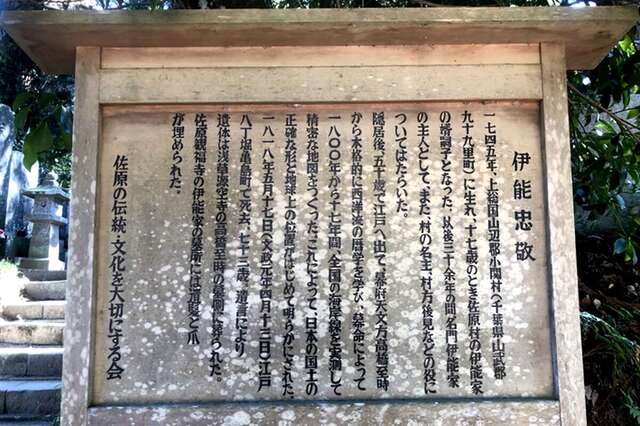 伊能忠敬
一七四五年、上総国山辺郡小関村（千葉県山武郡
九十九里町）に生れ、十七歳のとき佐原村の伊能家
の婿養子となった。以後三十余年の間名門伊能家
の主人として、また、村の名主、村方後見などの役に
ついてはたらいた。
隠居後、五十歳で江戸へ出て、幕府天文方高橋至時
から本格的に西洋流の暦学を学び、幕命によって
一八〇〇年から十七年間、全国の海岸線を実測して
精密な地図をつくった。これによって、日本の国土の
正確な形と地球上の位置がはじめて明らかにされた。
一八一八年五月十七日（文政元年四月十三日）江戸
八丁堀亀島町で死去、七十三歳。遺言により
遺体は浅草源空寺の高橋至時の墓側に葬られた。
佐原観福寺の伊能家の墓所には遺髪と爪
が埋められた。
佐原の伝統・文化を大切にする会